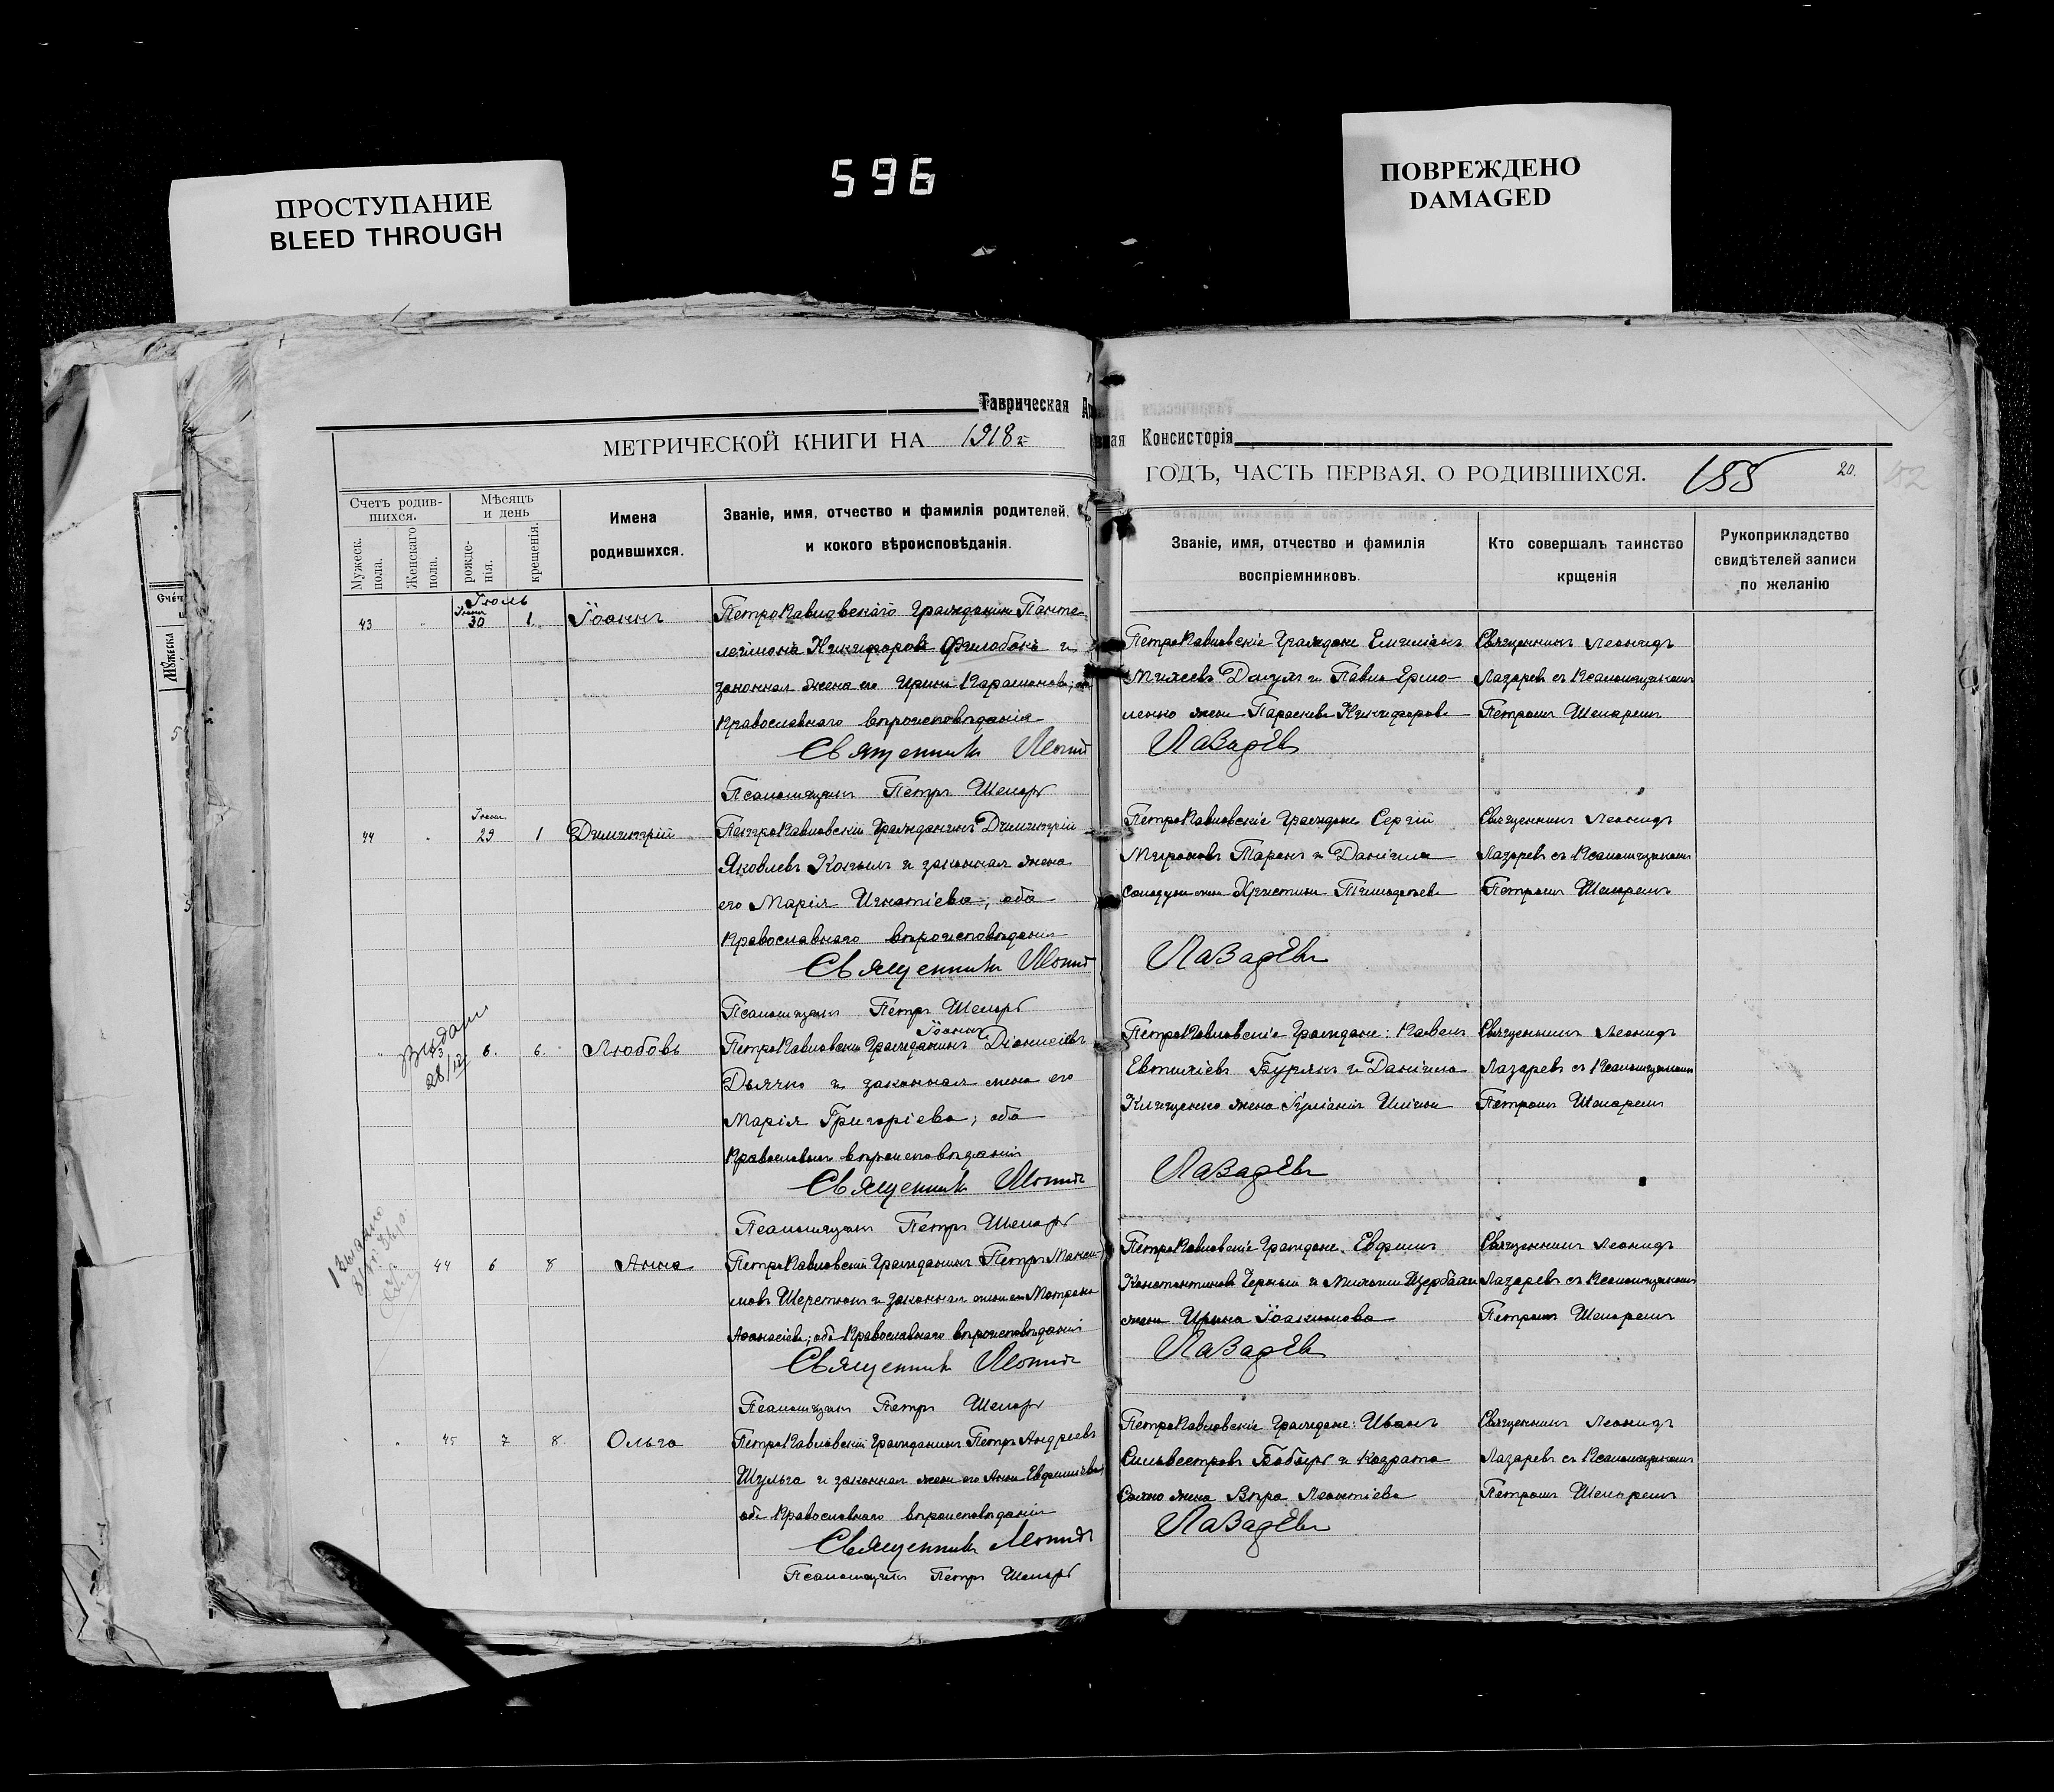 ПРОСТУПАНИЕ
BLEED THROUGH
596
ПОВРЕЖДЕНО
DAMAGED
Таврическая
Консисторія
МЕТРИЧЕСКОЙ КНИГИ НА 1918 г.
ГОДЪ, ЧАСТЬ ПЕРВАЯ, О РОДИВШИХСЯ.
155
20.
152
Счетъ родив-
шихся.
Мужеск.
пола.
Женскаго
пола.
Мѣсяцъ
и день
рожде-
нія.
крещенія.
Имена
родившихся.
Званіе, имя, отчество и фамилія родителей,
и кокого вѣроисповѣданія.
Званіе, имя, отчество и фамилія
воспріемниковъ.
Кто совершалъ таинство
крщенія
Рукоприкладство
свидѣтелей записи
по желанію
Іюль
43 Іюня 30 1. Іоаннъ
ПетроПавловскаго Гражданин Панте-
леимона Никифоров и
законная жена его Ирина
Православнаго вѣроисповѣданія
Священникъ Леонид
Псаломщикъ Петръ
ПетроПавловскіе Граждане Емиліанъ
Михеевъ и Павла Ермо-
ленко жена Параскева Никифорова
Лазаревъ
Священникъ Леонидъ
Лазаревъ съ Псаломщикомъ
Петромъ
44 Іюня 29 1 Димитрій
ПетроПавловскій Гражданинъ Димитрій
Яковлевъ и законная жена
его Марія Игнатіева; оба
Православнаго вѣроисповѣданія
Священникъ Леонид
Псаломщикъ Петръ
ПетроПавловскіе Граждане Сергій
Мироновъ Таранъ и Даніила
жена Христина Тимофеева
Лазаревъ
Священникъ Леонидъ
Лазаревъ съ Псаломщикомъ
Петромъ
Выдано
28/12
43 6. 6. Любовь
Іоаннъ
ПетроПавловскій Гражданинъ Діонисіевъ
Дьячко и законная жена его
Марія Григоріева; оба
Православнаго вѣроисповѣданія
Священникъ Леонид
Псаломщикъ Петръ
ПетроПавловскіе Граждане: Павелъ
Евтихіевъ Бурякъ и Даніила
Клищенко жена Іуліанія
Лазаревъ
Священникъ Леонидъ
Лазаревъ съ Псаломщикомъ
Петромъ
Выдано
44 6 8 Анна
ПетроПавловскій Гражданинъ Петръ Макси-
мовъ Шереметъ и законная жена его Матрона
Афанасіева; оба Православнаго вѣроисповѣданія
Священникъ Леонид
Псаломщикъ Петръ
ПетроПавловскіе Граждане. Евфимъ
Константиновъ Черный и Щербака
жена Ирина Іоакимова
Лазаревъ
Священникъ Леонидъ
Лазаревъ съ Псаломщикомъ
Петромъ
45 7 8. Ольга
ПетроПавловскій Гражданинъ Петръ Андреевъ
Шульга и законная жена его Анна Евфиміева
оба Православнаго вѣроисповѣданія
Священникъ Леонидъ
Псаломщикъ Петръ
ПетроПавловскіе Граждане: Иванъ
Сильвестровъ Бобырь и Кодрата
жена Вѣра Леонтіева
Лазаревъ
Священникъ Леонидъ
Лазаревъ съ Псаломщикомъ
Петромъ